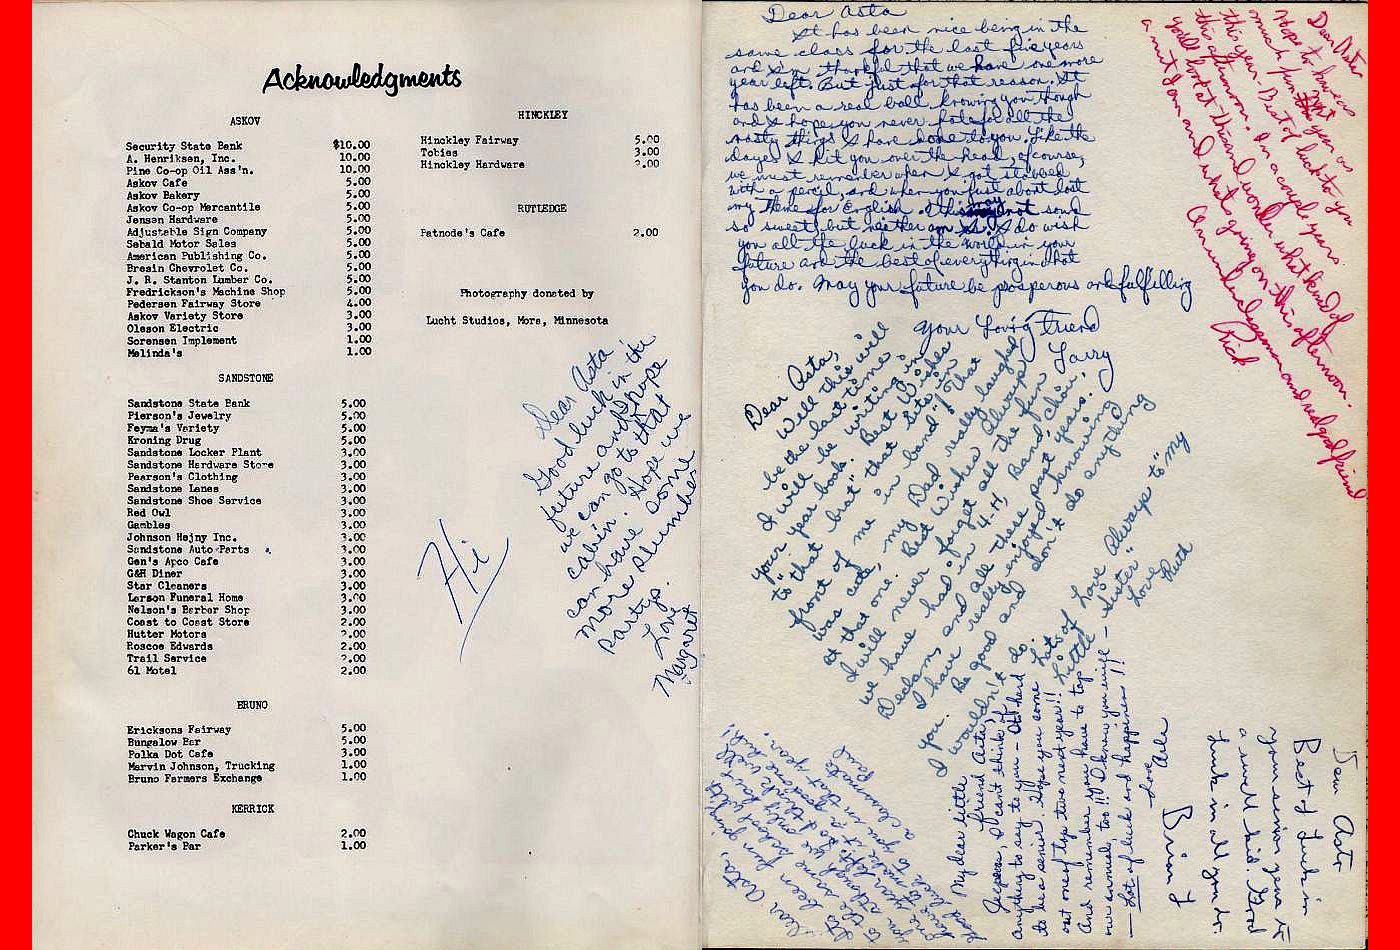 Acknowledgments
ASKOV
Security State Bank $10.00
A. Henriksen, Inc. 10.00
Pine Co-op Oil Ass'n. 10.00
Askov Cafe 5.00
Askov Bakery 5.00
Askov Co-op Mercantile 5.00
Jensen Hardware 5.00
Adjustable Sign Company 5.00
Sebald Motor Sales 5.00
American Publishing Co. 5.00
Bresin Chevrolet Co. 5.00
J. R. Stanton Lumber Co. 5.00
Fredrickson's Machine Shop 5.00
Pedersen Fairway Store 4.00
Askov Variety Store 3.00
Oleson Electric 3.00
Sorensen Implement 1.00
Melinda's 1.00
SANDSTONE
Sandstone State Bank 5.00
Pierson's Jewelry 5.00
Feyma's Variety 5.00
Kroning Drug 5.00
Sandstone Locker Plant 3.00
Sandstone Hardware Store 3.00
Pearson's Clothing 3.00
Sandstone Lanes 3.00
Sandstone Shoe Service 3.00
Red Owl 3.00
Gambles 3.00
Johnson Hejny Inc. 3.00
Sandstone Auto Parts 3.00
Gen's Apco Cafe 3.00
G&H Diner 3.00
Star Cleaners 3.00
Larson Funeral Home 3.00
Nelson's Barber Shop 3.00
Coast to Coast Store 2.00
Hutter Motors 2.00
Roscoe Edwards 2.00
Trail Service 2.00
61 Motel 2.00
BRUNO
Ericksons Fairway 5.00
Bungalow Bar 5.00
Polka Dot Cafe 3.00
Marvin Johnson, Trucking 1.00
Bruno Farmers Exchange 1.00
KERRICK
Chuck Wagon Cafe 2.00
Parker's Bar 1.00
HINCKLEY
Hinckley Fairway 5.00
Tobies 3.00
Hinckley Hardware 2.00
RUTLEDGE
Patnode's Cafe 2.00
Photography donated by
Lucht Studios, Mora, Minnesota
Hi
Dear Asta
Good luck in the
future and I hope
we can go to that
cabin. Hope we
can have some
more slumber
partys.
Love
Margaret
Dear Asta
It has been nice being in the
same class for the last five years
and I'm thankful that we have one more
year left. But just for that reason. It
has been a real ball knowing you though
and I hope you never hate for all the
nasty things I have done to you. Like the
dayes I hit you over the head, of course,
we must remember when I got stabbed
with a pencil, and when you just about lost
my theme for English. This may not sound
so sweet, but neither am I. I do wish
you all the luck in the world in your
future and the best of everything in what
you do. May your future be prosperous and fulfilling
Your Loving Friend
Larry
Dear Asta
Hope to have as
much fun next year as
this year. Best of luck to you
this afternoon. In a couple years
you'll look at this and wonder what kind of
a nut I am and what's going on this afternoon.
and real good friend
Rick
Dear Asta,
Well this will
be the last time
I will be writing in
your year book. Best Wishes
to "that brat" that sits in
front of me in band"! That
was cute, my Dad really laughed
at that one. Best Wishes Always
I will never forget all the fun
we have had in 4-H, Band, choir,
Declam, and all these past years.
I have really enjoyed knowing
you. Be good and don't do anything
I wouldn't do.
Lots of Love Always to "my
Little Sister"
Love,
Ruth
My dear little
friend Asta,
Jeepers, I can't think of
anything to say to you - It's hard
to be a senior. Hope you some
out one of tip two next year!!
And remember you have to tap
our annuals, too!! I know you will
- Lot of luck and happiness!!
Love
Arla
Dear Asta,
It's been fun going
to the same school with
Good luck to you in
Dear Asta
Best of luck in
your senior year to
a swell kid. Good
luck in all you do
Brian J